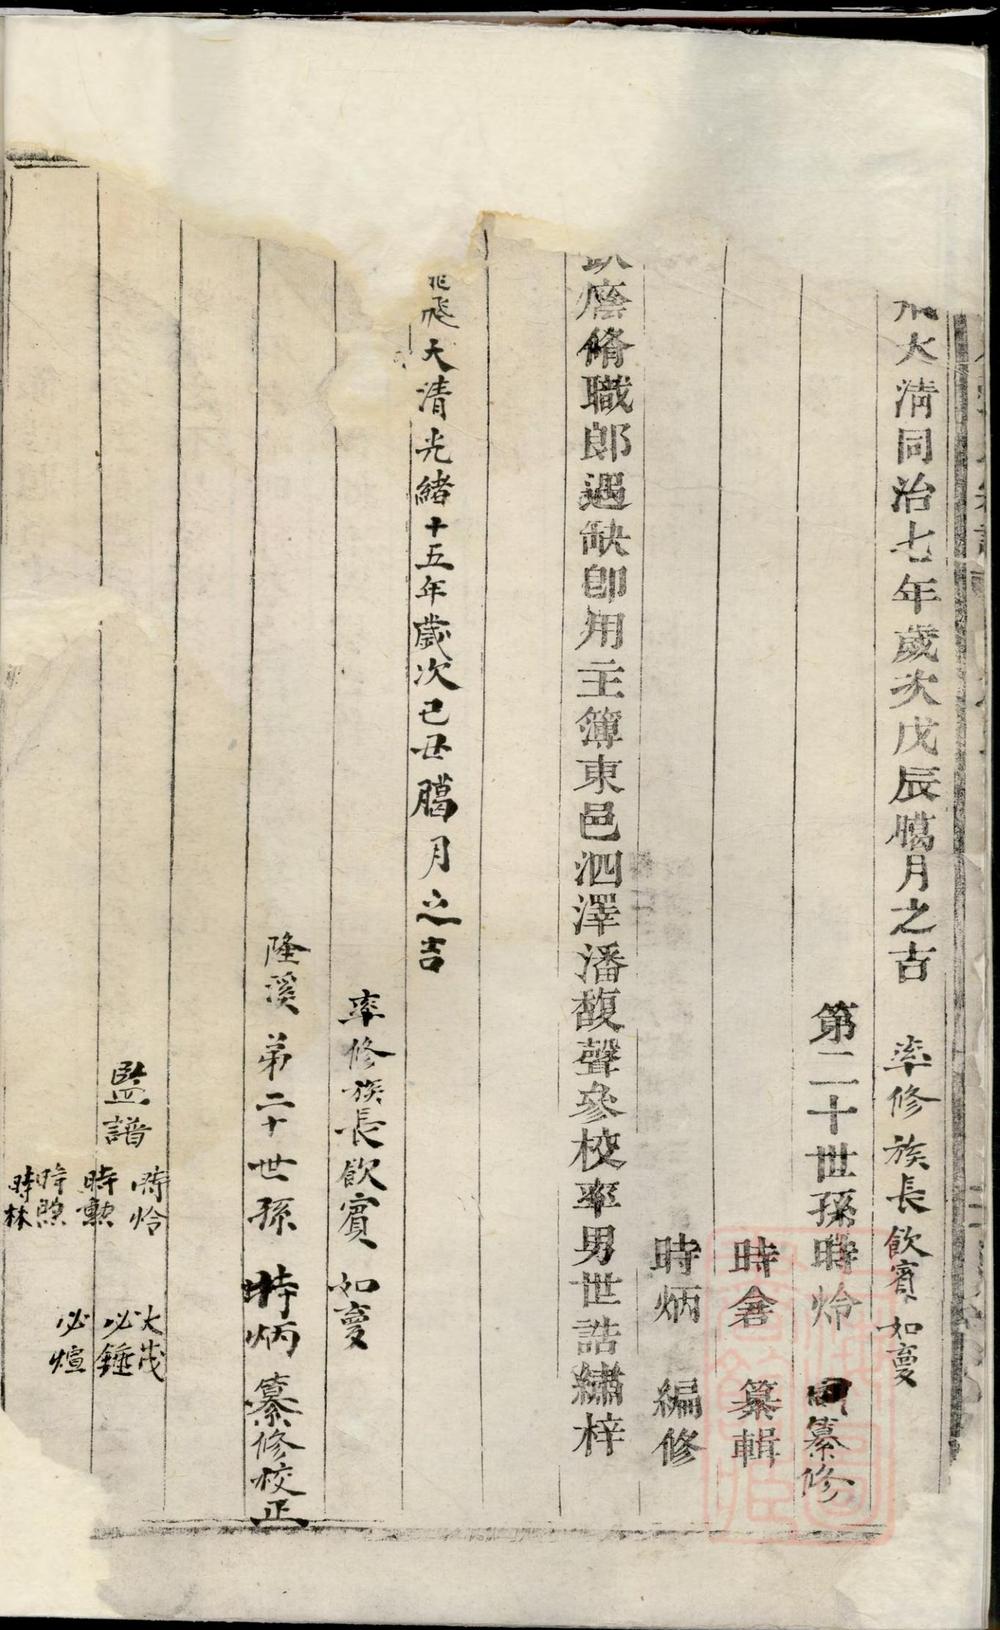 飛大清同治七年歲次戊辰臈月之吉 率修族長飲賓如夔
第二十世孫時怜 同纂修
時畣 纂輯
時炳 編修
廕脩職郎遇缺卽用主簿東邑泗澤潘馥聲參校率男世誥繡梓
龍飛大清光緒十五年歲次己丑臈月之吉
率修族長飲賓 如夔
隆溪 第二十世孫 時炳 纂修校正
監譜
時怜 大茂
時勳 必錘
時照 必煊
時林